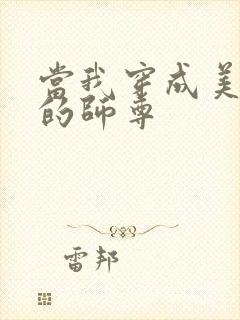 當我穿成美
的師尊
雷邦